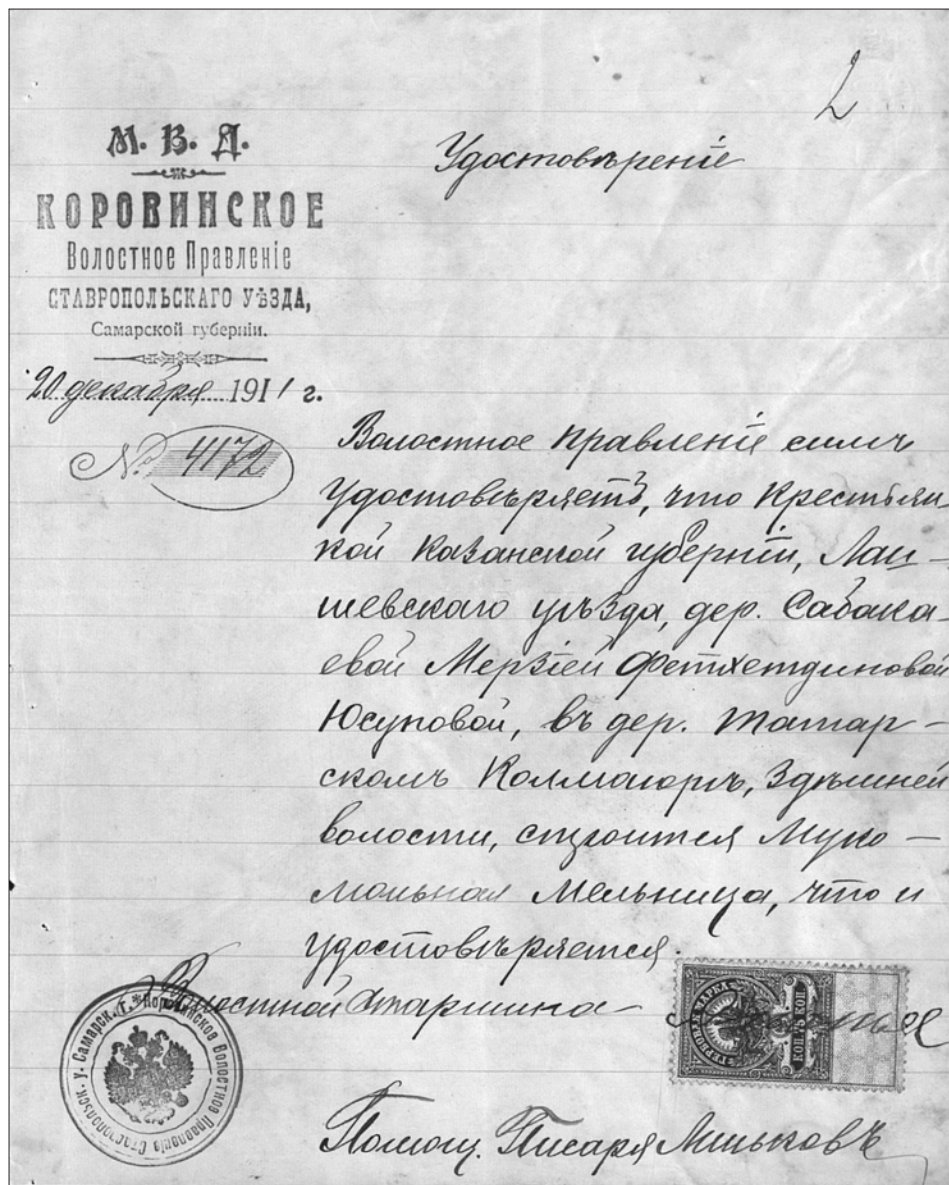 2
М. В. Д.
КОРОВИНСКОЕ
Волостное Правленіе
СТАВРОПОЛЬСКАГО УѢЗДА,
Самарской губерніи.
20 декабря 1911 г.
№ 4172
Удостовѣреніе
Волостное Правленіе симъ
удостовѣряетъ, что крестьян
кой Казанской губерніи, Лаи-
шевскаго уѣзда, дер. Сабака-
евой Мерзіей Фетхетдиновой
Юсуповой, въ дер. Татар-
скомъ Калмаюрѣ, здѣшней
волости, строится муко-
мольная мельница, что и
удостовѣряется.
Волостной Старшина
ГЕРБОВАЯ МАРКА
75 КОП
Коровинское Волостное Правленіе Ставропольск. у. Самарск. г.
Помощ. Писаря Миньковъ